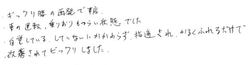 ギックリ腰の函館で来館。
車の運転、乗りおりもつらい状態でした。
自覚している、していないにかかわらず、指摘され、かるくふれるだけで
改善されてビックリしました。